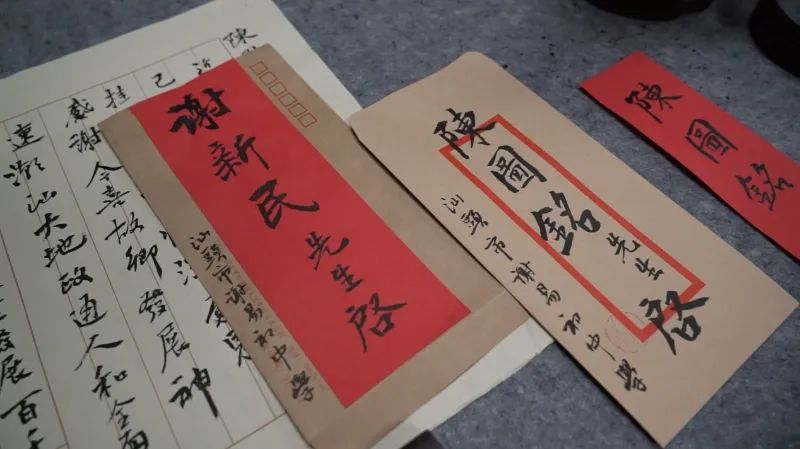 陳
己
挂
感謝今喜故鄉發展神
速潮汕大地政通人和全面
發展百
謝新民先生啓
汕頭市謝易初中學
陳圖銘先生啓
汕頭市謝易初中學
陳圖銘